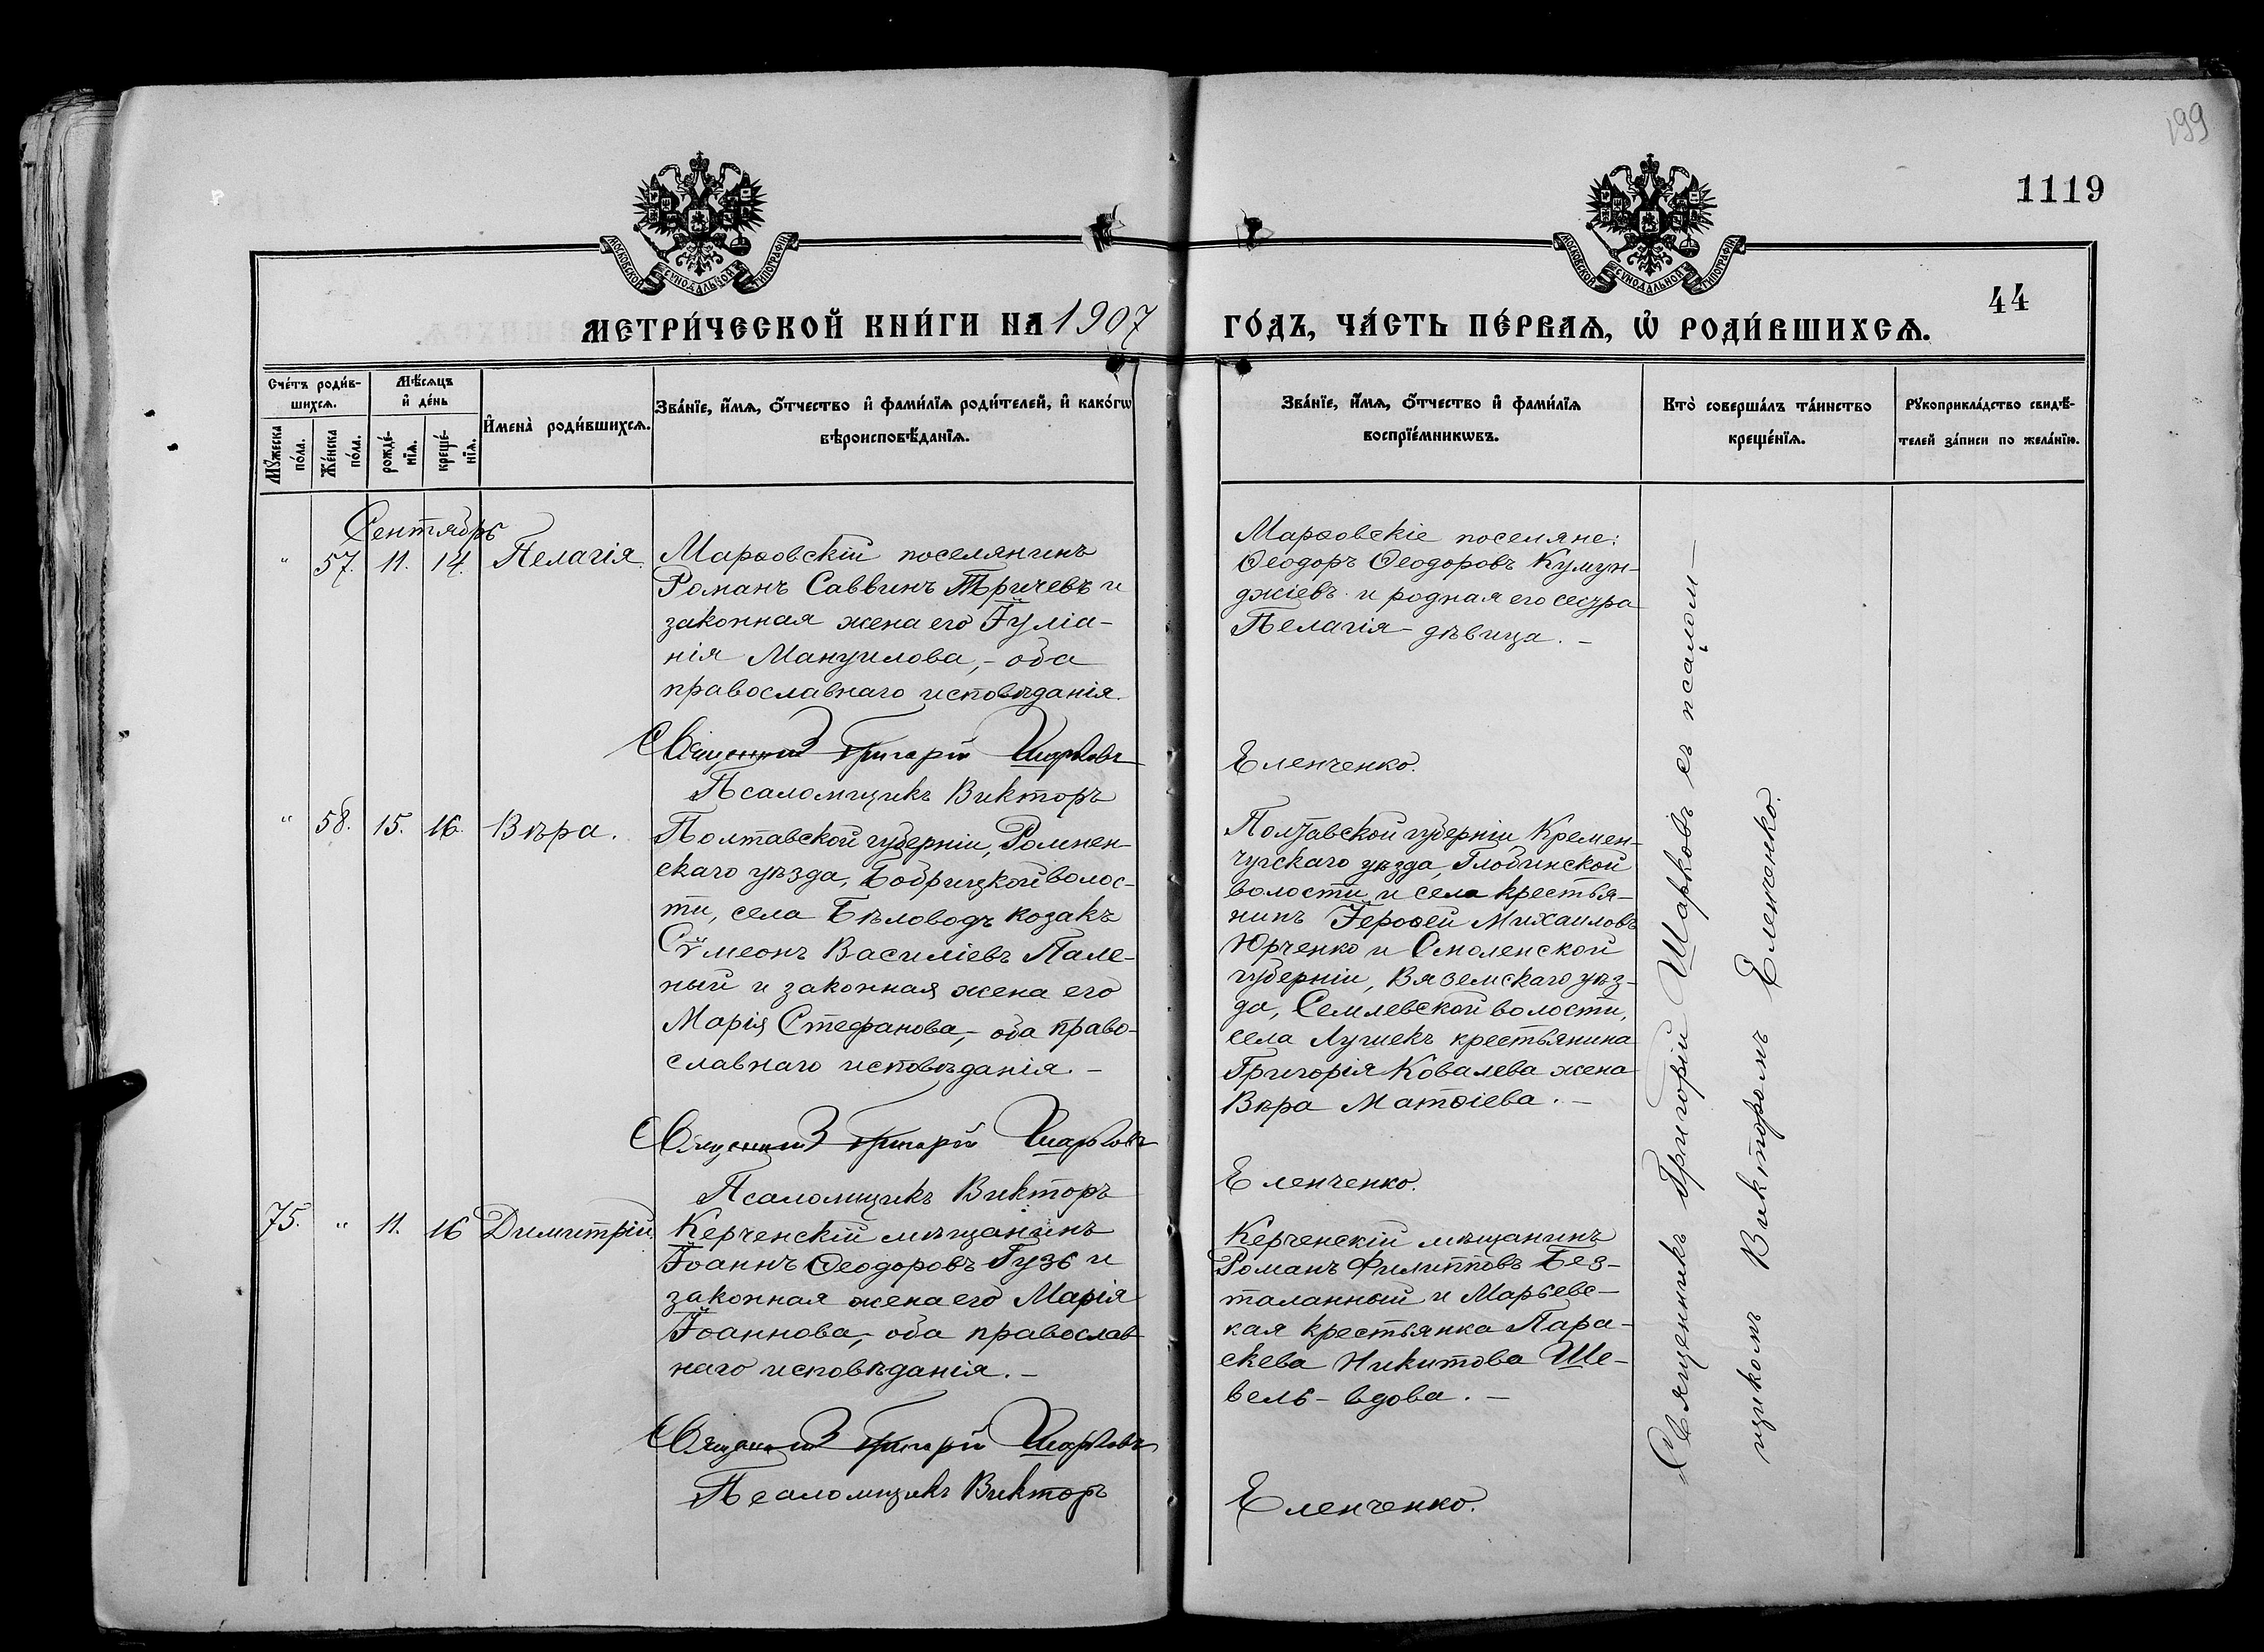 199
1119
44
МОСКОВСКОЙ СѴНОДАЛЬНОЙ ТИПОГРАФІИ
МОСКОВСКОЙ СѴНОДАЛЬНОЙ ТИПОГРАФІИ
МЕТРИ́ЧЕСКОЙ КНИ́ГИ НА 1907
ГО́ДЪ, ЧА́СТЬ ПЕ́РВАѦ, Ѡ҆ РОДИ́ВШИХСѦ.
Сче́тъ роди́в-
шихсѧ.
Мꙋ́жеска по́ла.
Же́нска по́ла.
Мѣ́сѧцъ
и҆ де́нь
рожде́-
нїѧ.
креще́-
нїѧ.
И҆мена̀ роди́вшихсѧ.
Зва́нїе, и҆́мѧ, ѻ҆́тчество и҆ фами́лїѧ роди́телей, и҆ како́гѡ
вѣроисповѣ́данїѧ.
Зва́нїе, и҆́мѧ, ѻ҆́тчество и҆ фами́лїѧ
воспрїе́мникѡвъ.
Кто̀ соверша́лъ та́инство
креще́нїѧ.
Рꙋкоприкла́дство свидѣ́-
телей за́писи по жела́нїю.
Сентябрь
" 57. 11. 14. Пелагія.
Марѳовскій поселянинъ
Романъ Саввинъ Тричевъ и
законная жена его Іуліа-
нія Мануилова, - оба
православнаго исповѣданія.
Священникъ Григорій Шарковъ
Псаломщикъ Викторъ
Марѳовскіе поселяне:
Ѳеодоръ Ѳеодоровъ Кумун-
джіевъ и родная его сестра
Пелагія - дѣвица. -
Еленченко.
" 58. 15. 16. Вѣра.
Полтавской губерніи, Ромнен-
скаго уѣзда, Бобрицкой волос-
ти, села Бѣловодъ козакъ
Сѵмеонъ Василіевъ Пале-
ный и законная жена его
Марія Стефанова, - оба право-
славнаго исповѣданія. -
Священникъ Григорій Шарковъ
Псаломщикъ Викторъ
Полтавской губерніи Кремен-
чугскаго уѣзда, Глобинской
волости и села крестья-
нинъ Іероѳей Михаиловъ
Юрченко и Смоленской
губерніи, Вяземскаго уѣз-
да, Семлевской волости,
села Лучекъ крестьянина
Григорія Ковалева жена
Вѣра Матѳіева. -
Еленченко.
75. " 11. 16 Димитрій.
Керченскій мѣщанинъ
Іоаннъ Ѳеодоровъ Гузь и
законная жена его Марія
Іоаннова, - оба православ-
наго исповѣданія. -
Священникъ Григорій Шарковъ
Псаломщикъ Викторъ
Керченскій мѣщанинъ
Романъ Филипповъ Без-
таланный и Марьевс-
кая крестьянка Пара-
скева Никитова Ше-
вель - вдова. -
Еленченко.
Священникъ Григорій Шарковъ съ псалом-
щикомъ Викторомъ Еленченко.